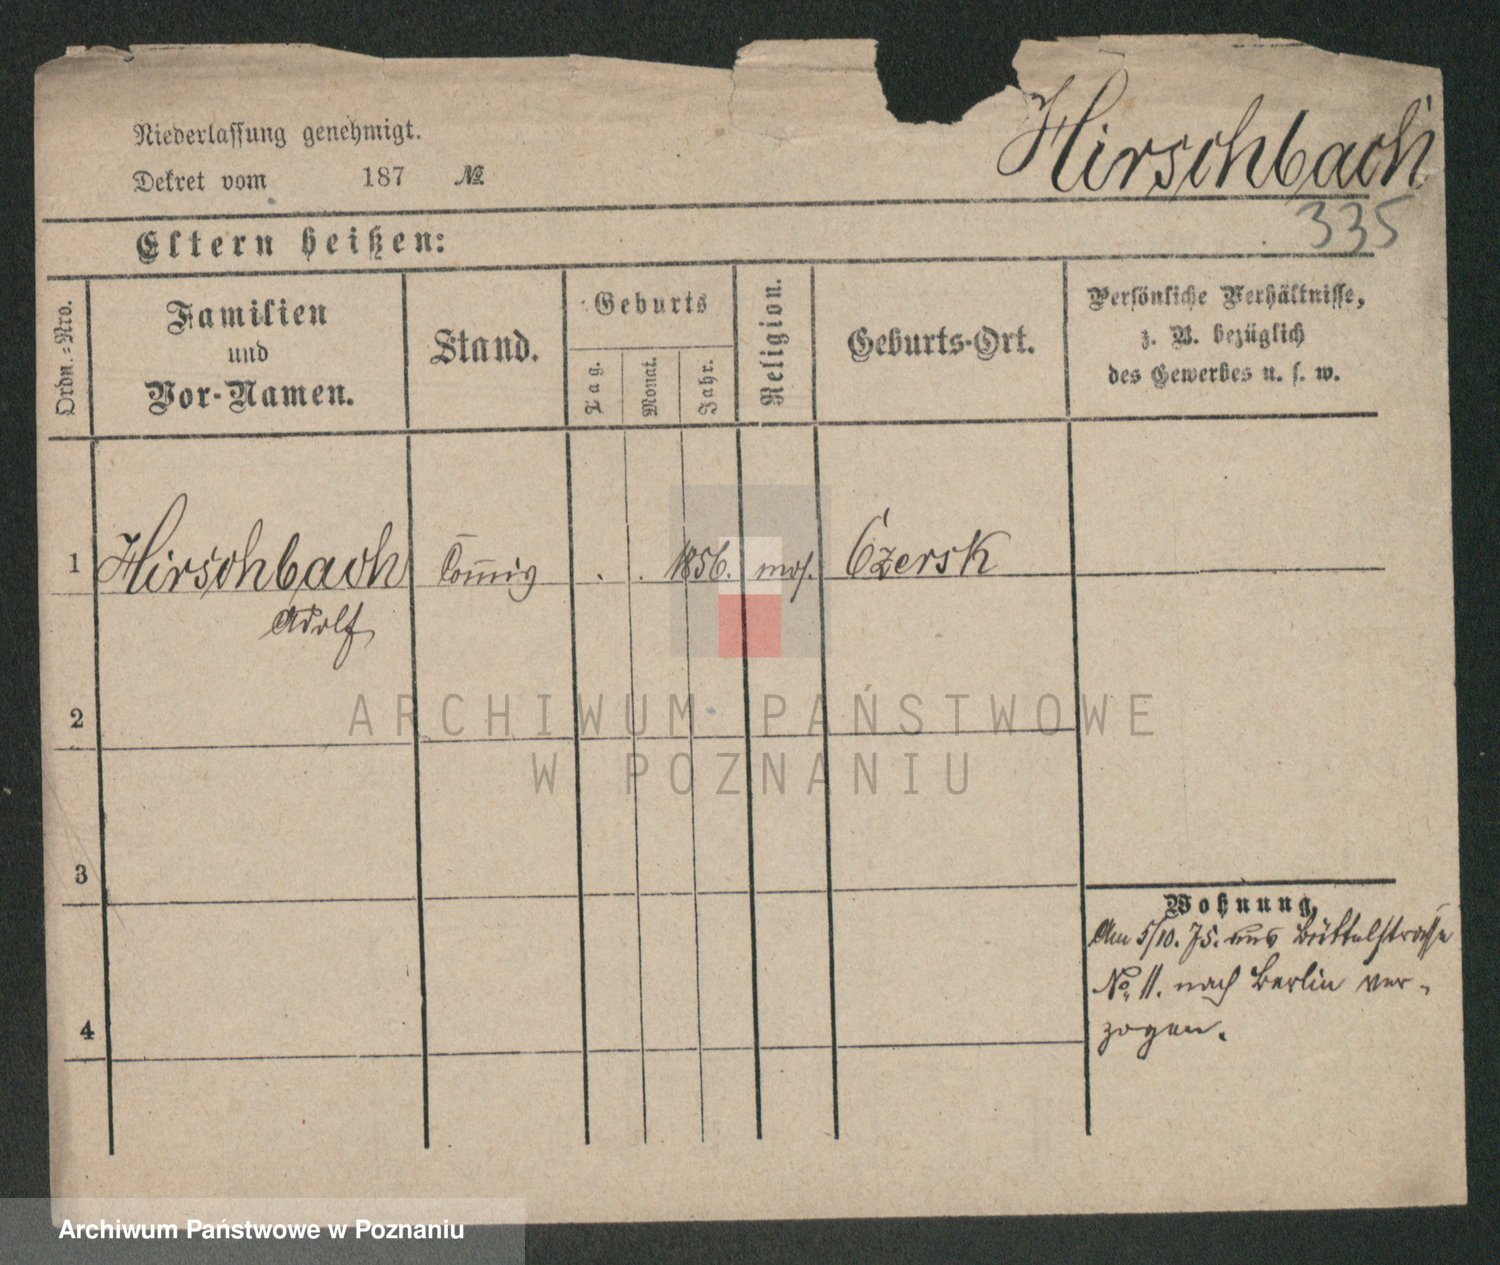 Hirschbach
Niederlassung genehmigt.
Dekret vom 187 №
335
Eltern heißen:
Ordn.=Nro.
Familien
und
Vor-Namen.
Stand.
Geburts
Tag.
Monat.
Jahr.
Religion.
Geburts-Ort.
Persönliche Verhältnisse,
z. B. bezüglich
des Gewerbes u. s. w.
1 Hirschbach Com̅is . . 1856. mos. Czersk
Adolf
2
3
4
Wohnung,
Am 5/10. 75. aus Büttelstrasse
No. 11. nach Berlin ver-
zogen.
ARCHIWUM PAŃSTWOWE
W POZNANIU
Archiwum Państwowe w Poznaniu